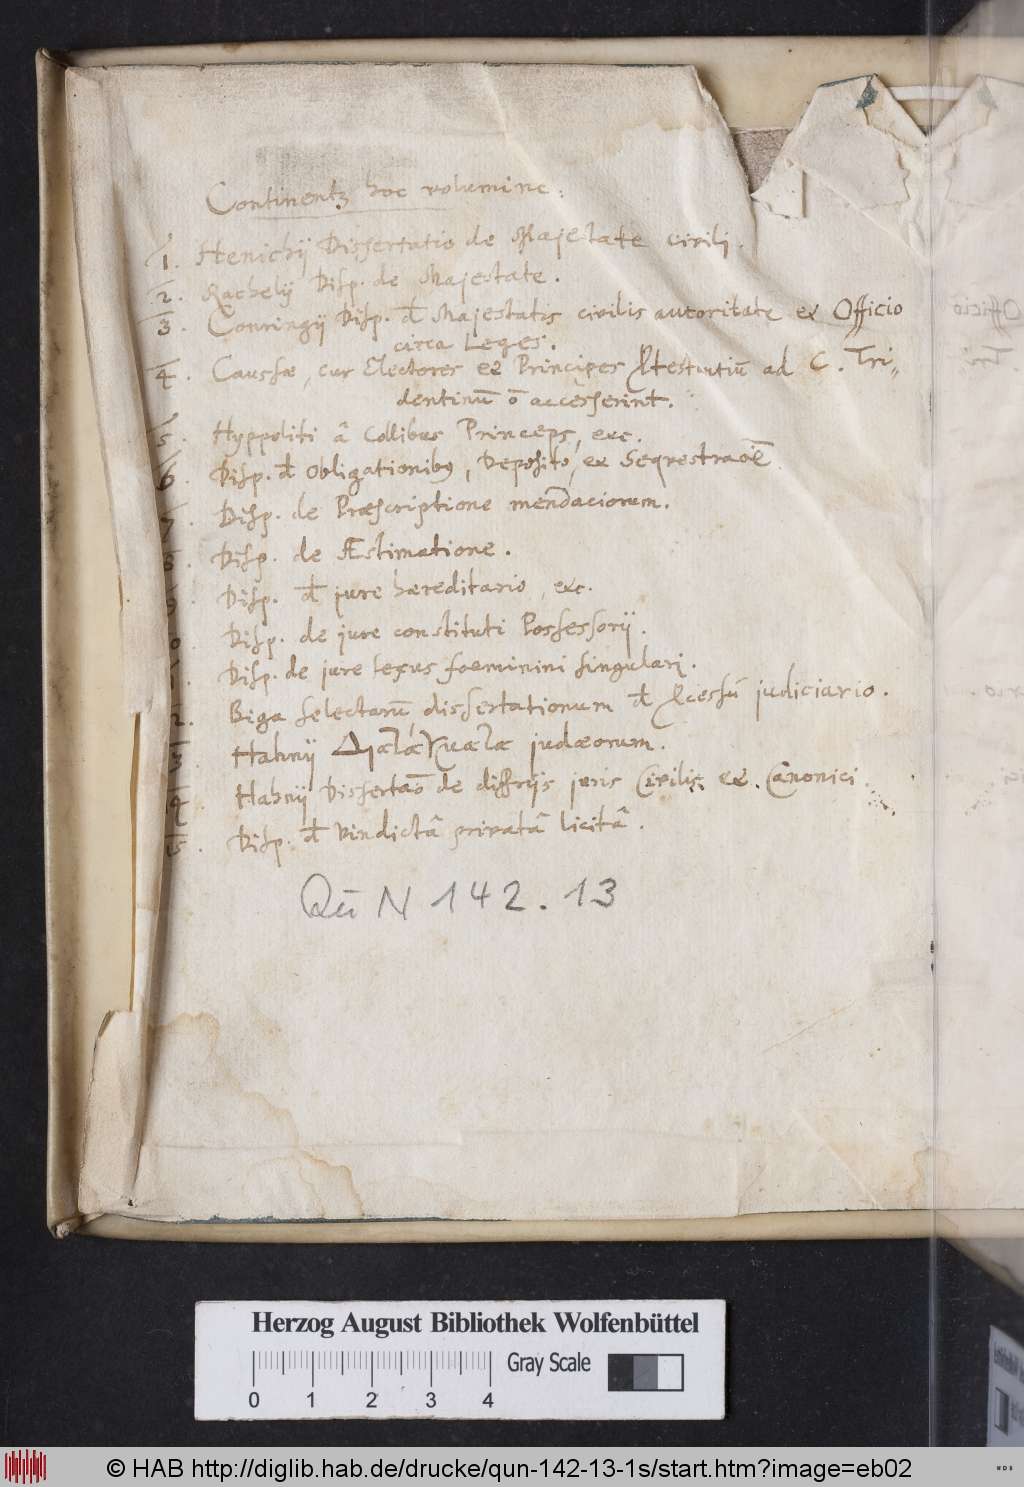 Continentꝫ hoc volumine.
1. Henichij Dissertatio de Majestate civili.
2. Rachelij Disp. de Majestate.
3. Conringij Disp. đ Majestatis civilis autoritate et Officio
circa Leges.
4. Caussæ, cur Electores et Principes Ꝓtestantiū ad C. Tri„
dentinū ō accesserint.
5. Hyppoliti â Collibus Princeps, etc.
6. Disp. đ Obligationibꝰ, Deposito, et Seqvestraõe
7. Disp. de Præscriptione mendaciorum.
8. Disp. de Æstimatione.
9. Disp. đ jure hæreditario, etc.
0. Disp. de jure constituti Possessorij.
1. Disp. de jure sexus foeminini singulari.
2. Biga selectarū dissertationum đ ꝓcessū judiciario.
3. Hahnij judæorum.
4. Hahnij Dissertaõ de diffrijs juris Civilis et Canonici
5. Disp. đ Vindictâ privatâ licitâ.
Qū N 142.13
Herzog August Bibliothek Wolfenbüttel
Gray Scale
0 1 2 3 4
© HAB http://diglib.hab.de/drucke/qun-142-13-1s/start.htm?image=eb02